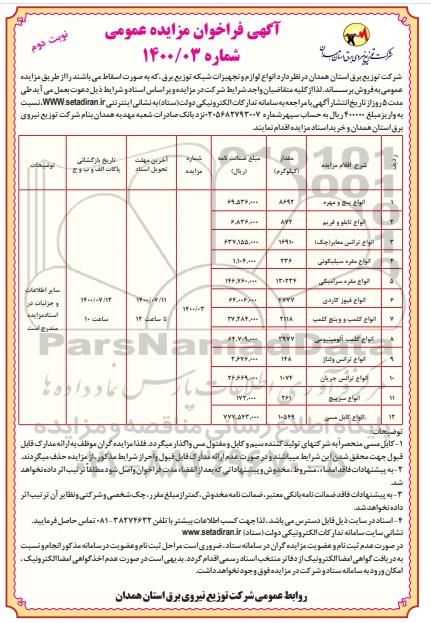 آگهی فراخوان مزایده عمومی
شماره ۱۴۰۰/۰۳
نوبت دوم
شرکت توزیع نیروی برق استان همدان
شرکت توزیع برق استان همدان در نظر دارد انواع لوازم و تجهیزات شبکه توزیع برق ، که به صورت اسقاط می باشند را از طریق مزایده
عمومی به فروش برساند. لذا از کلیه متقاضیان واجد شرایط شرکت در مزایده و بر اساس اسناد و شرایط ذیل دعوت بعمل می آید طی
مدت ۵ روز از تاریخ انتشار آگهی با مراجعه به سامانه تدارکات الکترونیکی دولت (ستاد) به نشانی اینترنتی WWW.setadiran.ir نسبت
به واریز مبلغ ۴۰۰۰۰۰ ریال به حساب سپهر شماره ۰۲۰۵۶۸۲۷۹۳۰۰۷ نزد بانک صادرات شعبه مهدیه همدان بنام شرکت توزیع نیروی
برق استان همدان و خرید اسناد مزایده اقدام نمایند.
ردیف | شرح اقلام مزایده | مقدار (کیلوگرم) | مبلغ ضمانت نامه (ریال) | شماره مزایده | آخرین مهلت تحویل اسناد | تاریخ بازگشائی پاکات الف و ب و ج | توضیحات
۱ انواع پیچ و مهره ۸۶۹۲ ۶۹,۵۳۶,۰۰۰
۲ انواع تابلو و فریم ۸۷۲ ۶,۸۳۶,۰۰۰
۳ انواع ترانس معابر(چک) ۱۶۹۱۰ ۶۳۷,۱۵۵,۰۰۰
۴ انواع مقره سیلیکونی ۳۳۶ ۱,۱۰۴,۰۰۰
۵ انواع مقره سرامیکی ۱۳۰۲۳۴ ۱۴۶,۷۶۰,۰۰۰
۶ انواع فیوز کاردی ۴۷۷۷ ۶۴,۰۰۶,۰۰۰
۷ انواع کلمپ و وینچ کلمپ ۲۱۱۸ ۲۷,۲۸۴,۰۰۰
۸ انواع کلمپ آلومینیومی ۳۹۷۷ ۶۴,۷۰۹,۰۰۰
۹ انواع ترانس ولتاژ ۱۴۸ ۳,۶۷۶,۰۰۰
۱۰ انواع ترانس جریان ۱۰۷۴ ۲۶,۶۶۹,۰۰۰
۱۱ انواع سرپیچ ۲۶۱ ۱۷۲,۰۰۰
۱۲ انواع کابل مسی ۱۰۵۴۹ ۷۷۷,۵۴۳,۰۰۰
۱۴۰۰/۰۳
۱۴۰۰/۰۷/۱۱
تا ساعت ۱۳
۱۴۰۰/۰۷/۱۲
ساعت ۱۰
سایر اطلاعات
و جزئیات در
اسناد مزایده
مندرج است
توضیحات:
۱- کابل مسی منحصراً به شرکتهای تولید کننده سیم و کابل و مفتول مس واگذار میگردد. فلذا مزایده گران موظف به ارائه مدارک قابل
قبول جهت محقق شدن این شرایط میباشند و در صورت عدم ارائه مدارک قابل قبول و احراز شرایط مذکور ، از مزایده حذف میگردند.
۲- به پیشنهادات فاقد امضاء ، مشروط ، مخدوش و پیشنهاداتی که بعد از انقضاء مدت فراخوان واصل شود مطلقاً ترتیب اثر داده نخواهد
شد.
۳- به پیشنهادات فاقد ضمانت نامه بانکی معتبر، ضمانت نامه مخدوش ، کمتر از مبلغ مقرر ، چک شخصی و شرکتی و نظایر آن ترتیب اثر
داده نخواهد شد.
۴- اسناد در سایت ذیل قابل دسترس می باشد . لذا جهت کسب اطلاعات بیشتر با تلفن ۳۸۲۷۴۶۳۲-۰۸۱ تماس حاصل فرمایید.
نشانی سایت سامانه تدارکات الکترونیکی دولت (ستاد) www.setadiran.ir
در صورت عدم ثبت نام و عضویت مزایده گران در سامانه ستاد ، ضروری است مراحل ثبت نام و عضویت در سامانه مذکور انجام و نسبت
به دریافت گواهی امضا الکترونیک ، از دفاتر منتخب اسناد رسمی اقدام گردد. بدیهی است در صورت عدم اخذ گواهی امضا الکترونیک ،
امکان ورود به سامانه ستاد و شرکت در مزایده فوق وجود نخواهد داشت.
روابط عمومی شرکت توزیع نیروی برق استان همدان
ParsNamadData